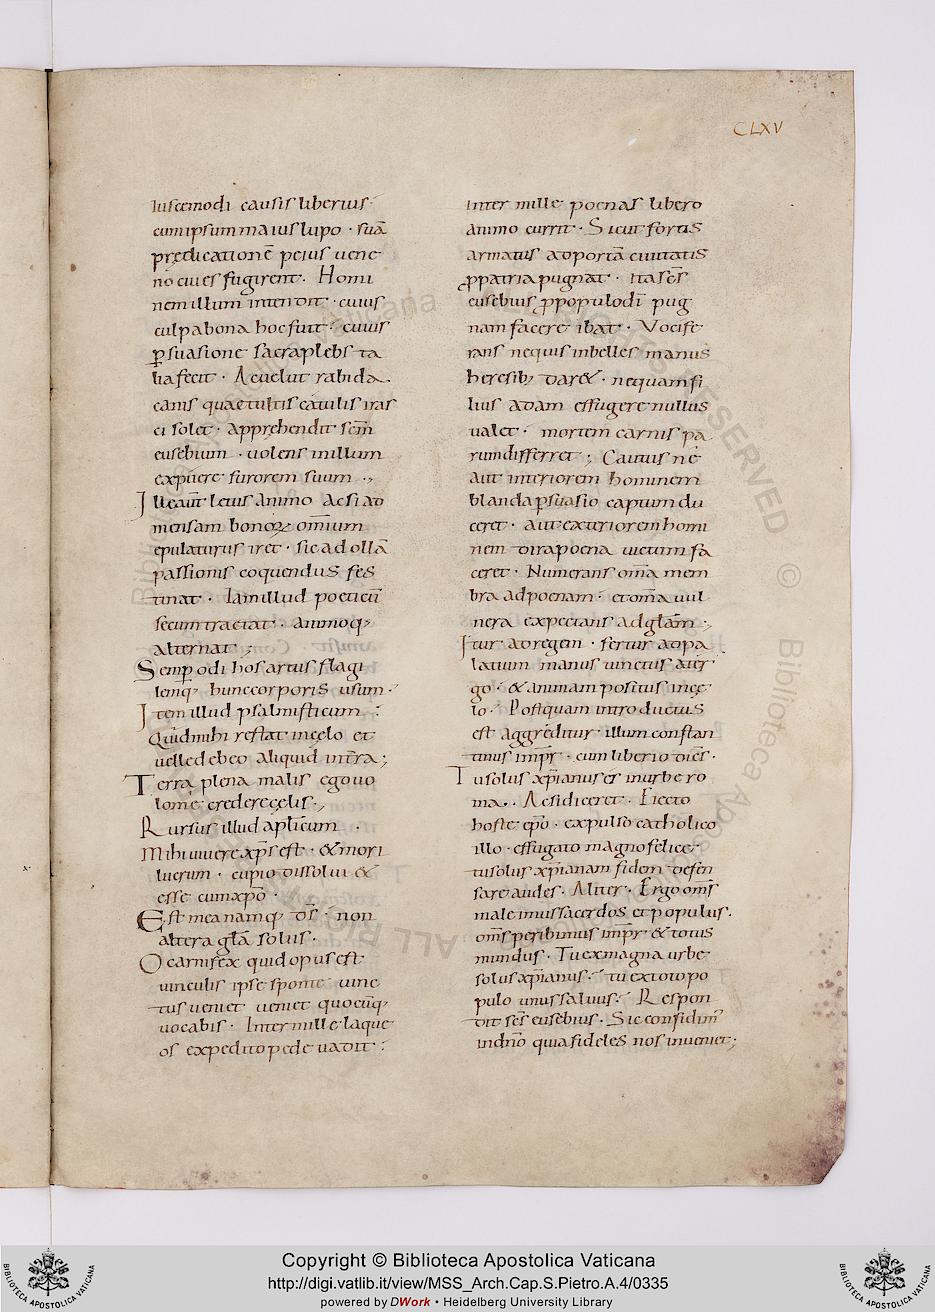 CLXV
iuscemodi causis liberius
cum ipsum maius lupo · suā
prędicationē peius uene
no ciues fugirent · Homi
nem illum intendit · cuius
culpa bona hoc fuit · cuius
p̱suasione sacra plebs ta
lia fecit · Ac uelut rabida
canis quae tultis catulis iras
ci solet · apprehendit sc̄m
eusebium · uolens in illum
expuere furorem suum ·,
Ille aūt leuis animo ac si ad
mensam bonoꝝ omnium
epulaturus iret · sic ad ollā
passionis coquendus fes
tinat · Iam illud poeticū
secum tractat · animoq;
alternat ;
Semp̱ odi hos artus flagi
lemq; hunc corporis usum ·
Item illud psalmisticum :
Quid mihi restat in cęlo et
uelle debeo aliquid in tr̄a ;
Terra plena malis ego uo
lo me credere cęlis ·,
Rursus illud apl̄icum ·
Mihi uiuere xp̄s est · & mori
lucrum · cupio dissolui &
esse cum xp̄o ·
Est mea namq; d̄s · non
altera gl̄a solus ·
O carnifex quid opus est
uinculis ipse sponte uinc
tus ueniet ueniet quocūq;
uocabis · Inter mille laque
os expedito pede uadit :
inter mille poenas libero
animo currit · Sicut fortis
armatus ad portā ciuitatis
ꝓ patria pugnat · Ita sc̄s
eusebius ꝓ populo dī pug
nam facere ibat · Vocife
rans nequis inbelles manus
heresib; dar& · nequam fi
lius adam effugere nullus
ualet · mortem carnis pa
rum differret ; Cautus ne
aut interiorem hominem
blanda p̱suasio captum du
ceret · aut exteriorem homi
nem dira poena uictum fa
ceret · Numerans om̄a mem
bra ad poenam · et om̄a uul
nera expectans ad gl̄am ·,
Itur ad regem · fertur ad pa
latium manus uinctus a ter
go · & animam positus in cę
lo · Postquam introductus
est aggreditur illum constan
tinus imp̄r · cum liberio dicēs ·
Tu solus xp̄ianus es in urbe ro
ma · Ac si diceret · Eiecto
hoste ep̄o · expulso catholico
illo · effugato magno felice
tu solus xp̄ianam fidem defen
sare audes · Aliter · Ergo om̄s
male in us sacerdos et populus ·
om̄s peribimus imp̄r & totus
mundus · Tu ex magna urbe
solus xp̄ianus · tu ex toto po
pulo unus saluus · Respon
dit sc̄s eusebius · Sic confidim̄
in dn̄o quia fideles nos inueniet ;
Copyright © Biblioteca Apostolica Vaticana
http://digi.vatlib.it/view/MSS_Arch.Cap.S.Pietro.A.4/0335
powered by DWork • Heidelberg University Library